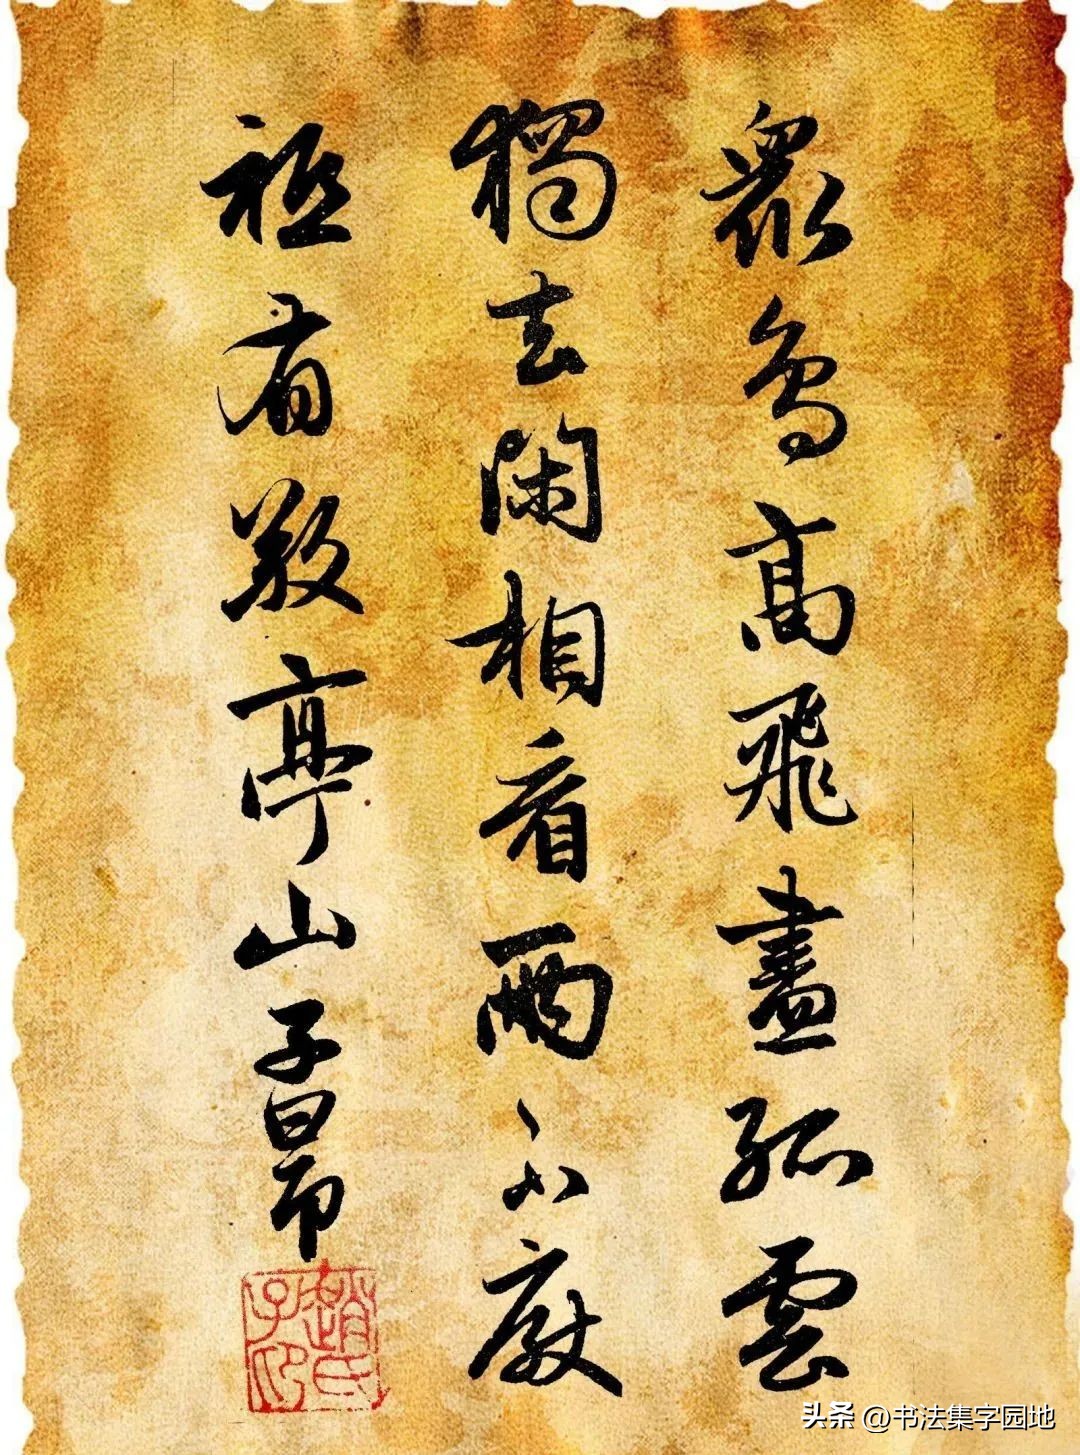 衆鳥高飛盡孤雲
獨去閑相看兩不厭
祗有敬亭山子昂
趙氏子昂
头条 @书法集字园地